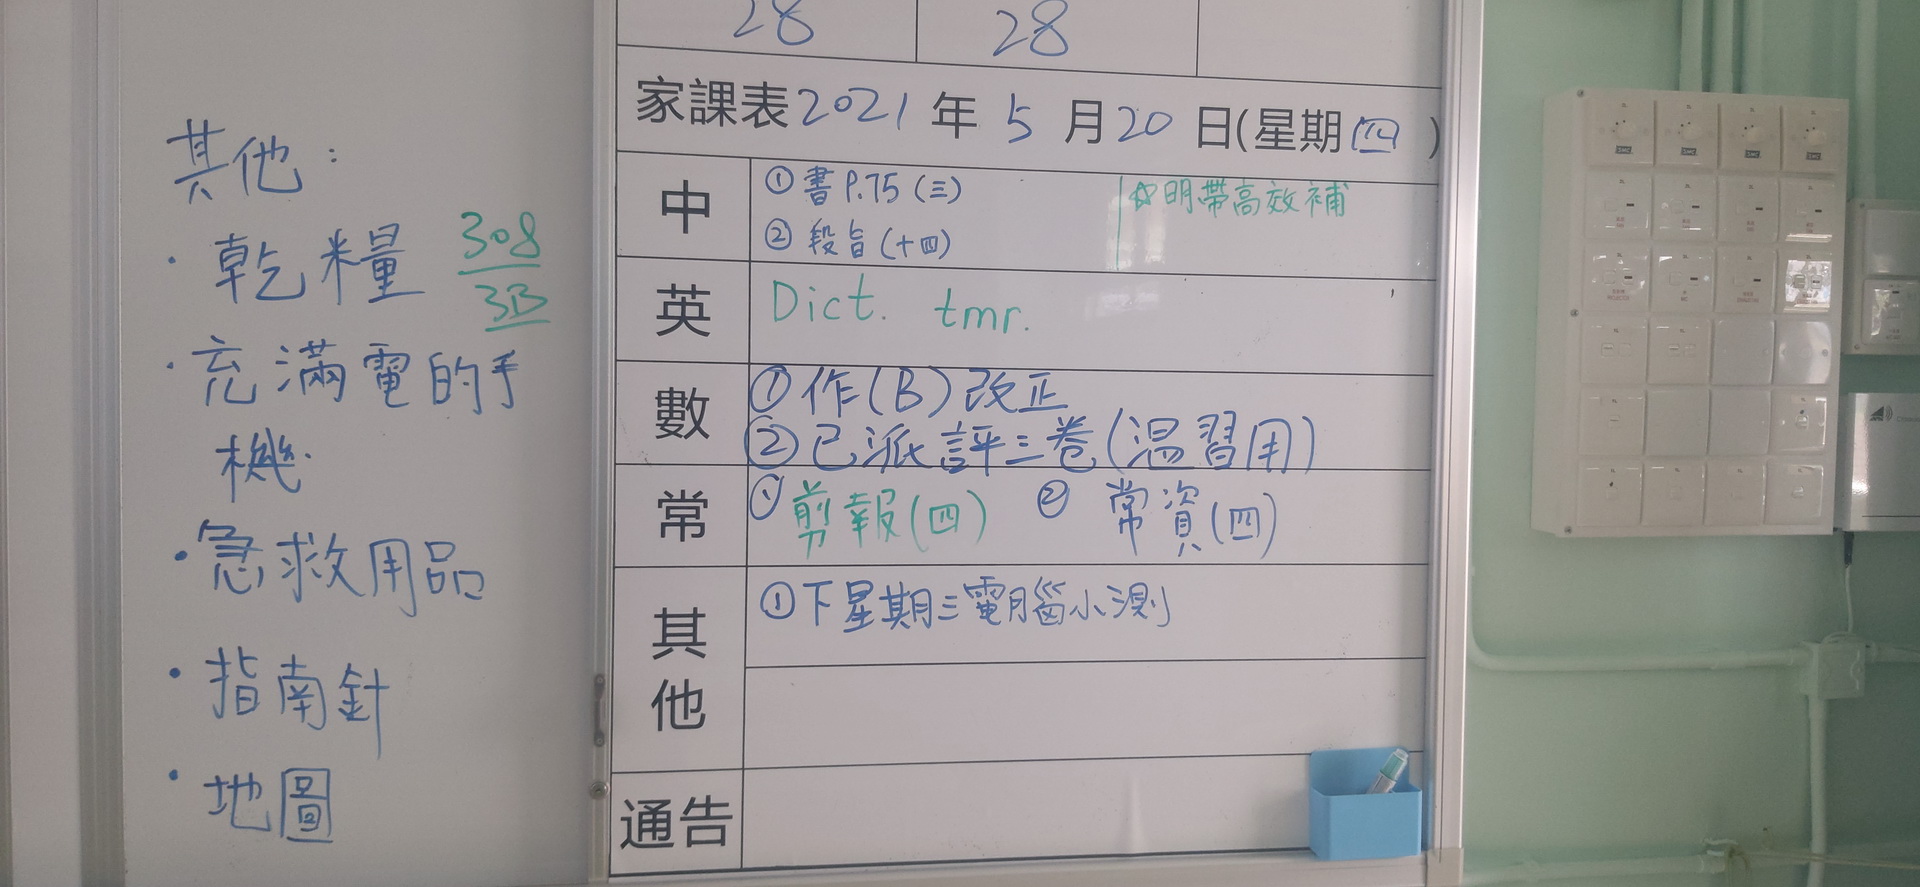 其他：
· 乾糧
308
3B
· 充滿電的手
機
· 急救用品
· 指南針
· 地圖
28 28
家課表 2021 年 5 月 20 日(星期四)
中
① 書 P.75 (三)
② 段旨 (十四)
☆明帶高效補
英
Dict. tmr.
數
① 作(B)改正
② 已派評三卷(温習用)
常
① 剪報(四) ② 常資(四)
其他
① 下星期三電腦小測
通告